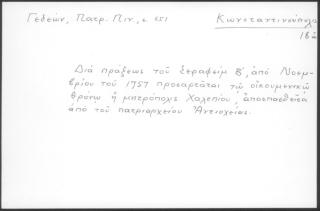 Γεδεών, Πατρ. Πιν., σ. 651
Κωνσταντινούπολ
182
Διά πράξεως τοῦ Σεραφείμ Β΄, ἀπό Νοεμ-
βρίου τοῦ 1757 προσαρτᾶται τῷ οἰκουμενικῷ
θρόνῳ ἡ μητρόπολις Χαλεπίου, ἀποσπασθεῖσα
ἀπό τοῦ πατριαρχείου Ἀντιοχείας.